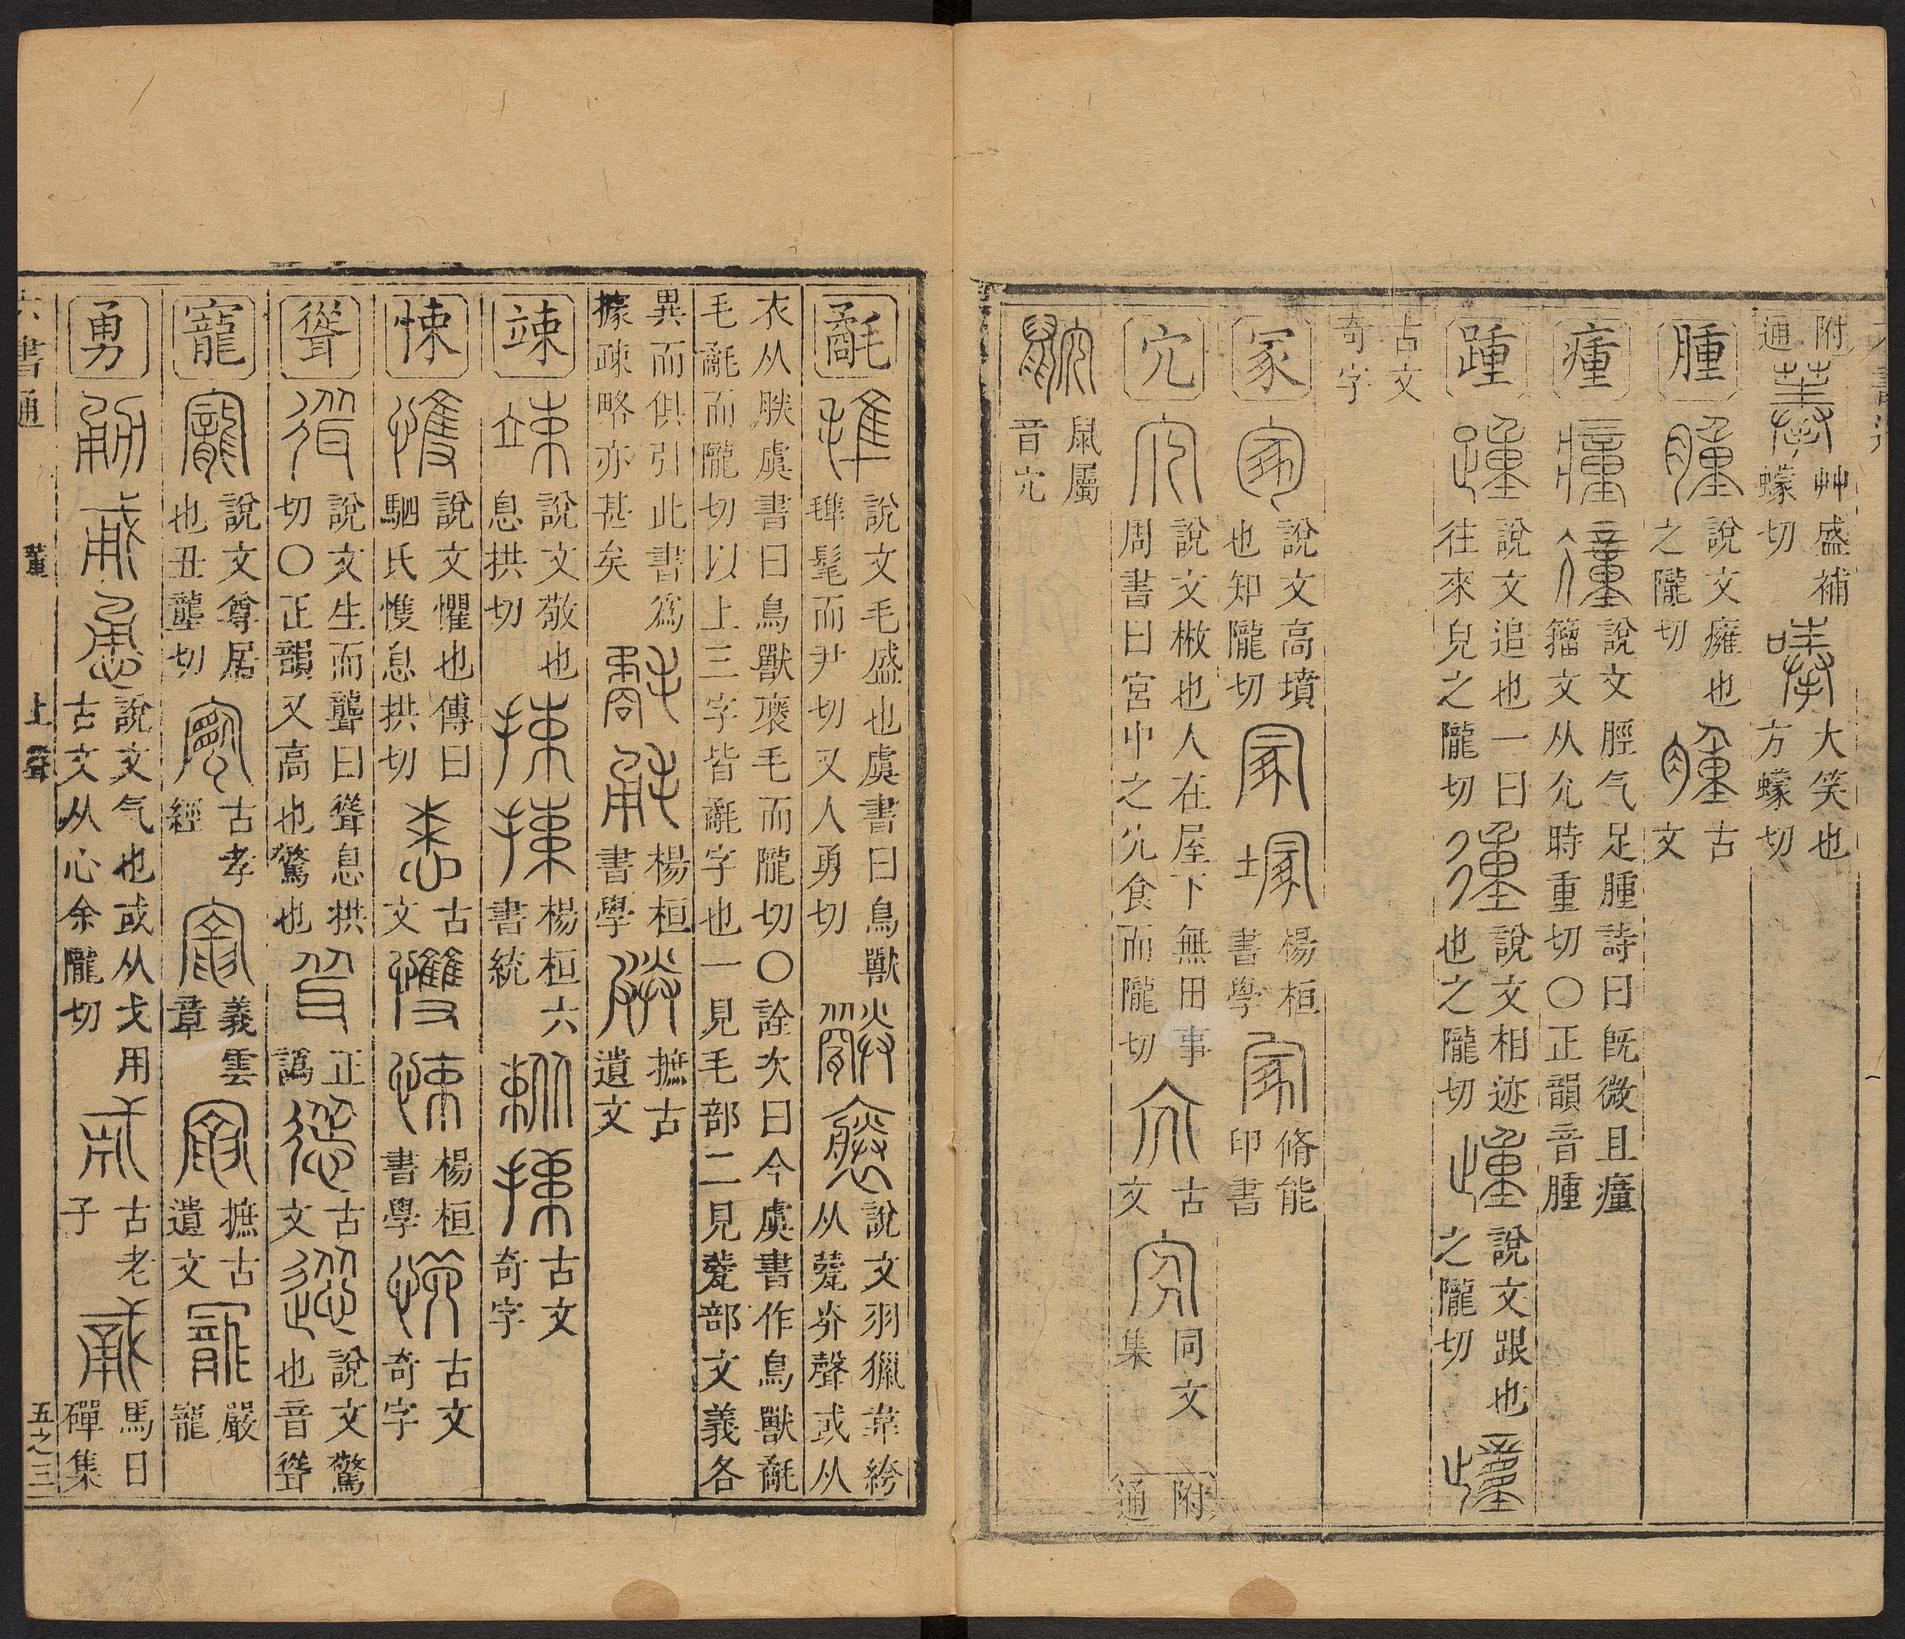 附通 艸盛補蠓切 大笑也方蠓切
腫 說文癰也之隴切 古文
瘇 說文脛气足腫詩曰旣微且瘇籀文从尣時重切〇正韻音腫
踵 說文追也一曰往來皃之隴切 說文相迹也之隴切 說文跟也之隴切
古文奇字
冢 說文高墳也知隴切 楊桓書學 脩能印書
宂 說文㪔也人在屋下無田事周書曰宮中之宂食而隴切 古文 同文集 附通
鼠屬音宂
氄 說文毛盛也虞書曰鳥獸𣯍髦而尹切又人勇切 說文羽獵韋絝从㼱灷聲或从
衣从朕虞書曰鳥獸褎毛而隴切〇詮次曰今虞書作鳥獸氄
毛氄而隴切以上三字皆氄字也一見毛部二見㼱部文義各
異而俱引此書爲 楊桓書學 摭古遺文
據疎略亦甚矣
竦 說文敬也息拱切 楊桓六書統 古文奇字
悚 說文懼也傳曰駟氏愯息拱切 古文 楊桓書學 古文奇字
聳 說文生而聾曰聳息拱切〇正韻又高也驚也 正譌 古文 說文驚也音聳
寵 說文尊居也丑壟切 古孝經 義雲章 摭古遺文 嚴寵
勇 說文气也或从戈用古文从心余隴切 古老子 馬日磾集
六書通 董 上聲 五之三